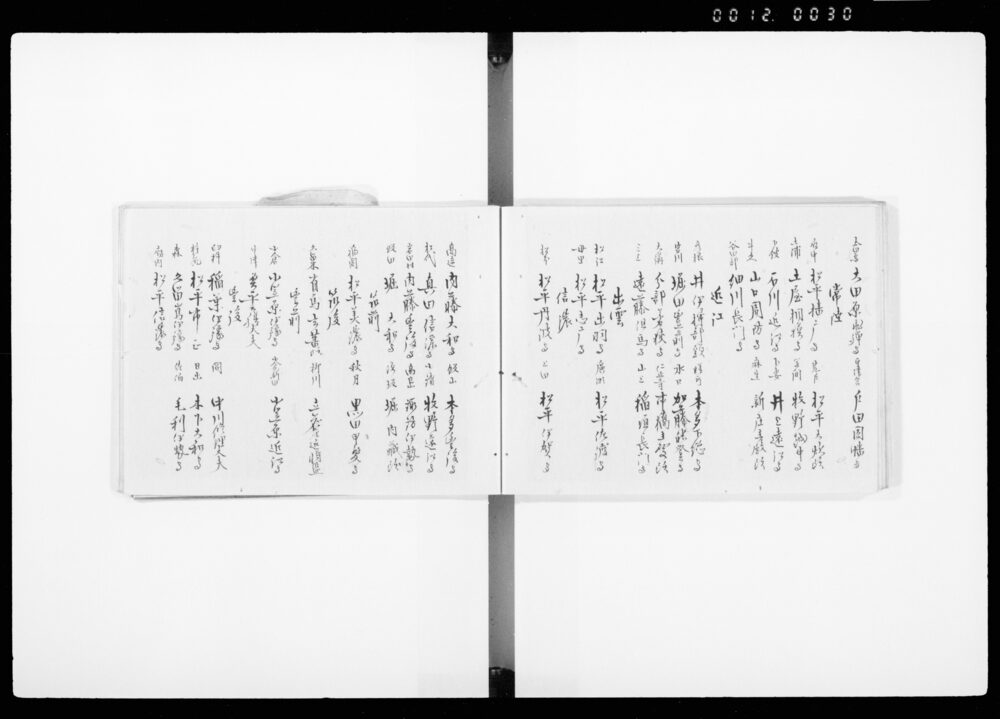 0012. 0030
大田原 大田原飛騨守 喜連川 戸田因幡守
常陸
府中 松平播广守 笠間
土浦 土屋相模守 笠間 牧野越中守
石川近江守 下妻 井上遠江守
牛久 山口周防守 麻生 新庄主殿頭
谷田部 細川長門守
近江
彦根 井伊掃部頭 膳所 本多下総守
宮川 堀田豊前守 水口 加藤能登守
大溝 分部若狭守 仁正寺 市橋主殿頭
三上 遠藤但馬守 山上 稲垣長門守
出雲
松江 松平出羽守 廣瀬 松平佐渡守
母里 松平志广守
信濃
松本 松平丹波守 上田 松平伊賀守
高遠 内藤大和守 飯山 本多豊後守
松代 真田信濃守 小諸 牧野遠江守
岩村田 内藤豊後守 高島 諏訪伊勢守
飯田 堀大和守 須坂 堀内蔵頭
筑前
福岡 松平美濃守 秋月 黒田甲斐守
筑後
久留米 有馬玄蕃頭 柳川 立花左近将監
豊前
小倉 小笠原伊豫守 小倉新田 小笠原近江守
中津 奥平大膳大夫
豊後
臼杵 稲葉伊豫守 岡 中川修理大夫
杵築 松平市正 日出 木下大和守
森 久留嶌伊豫守 佐伯 毛利伊勢守
府内 松平信濃守